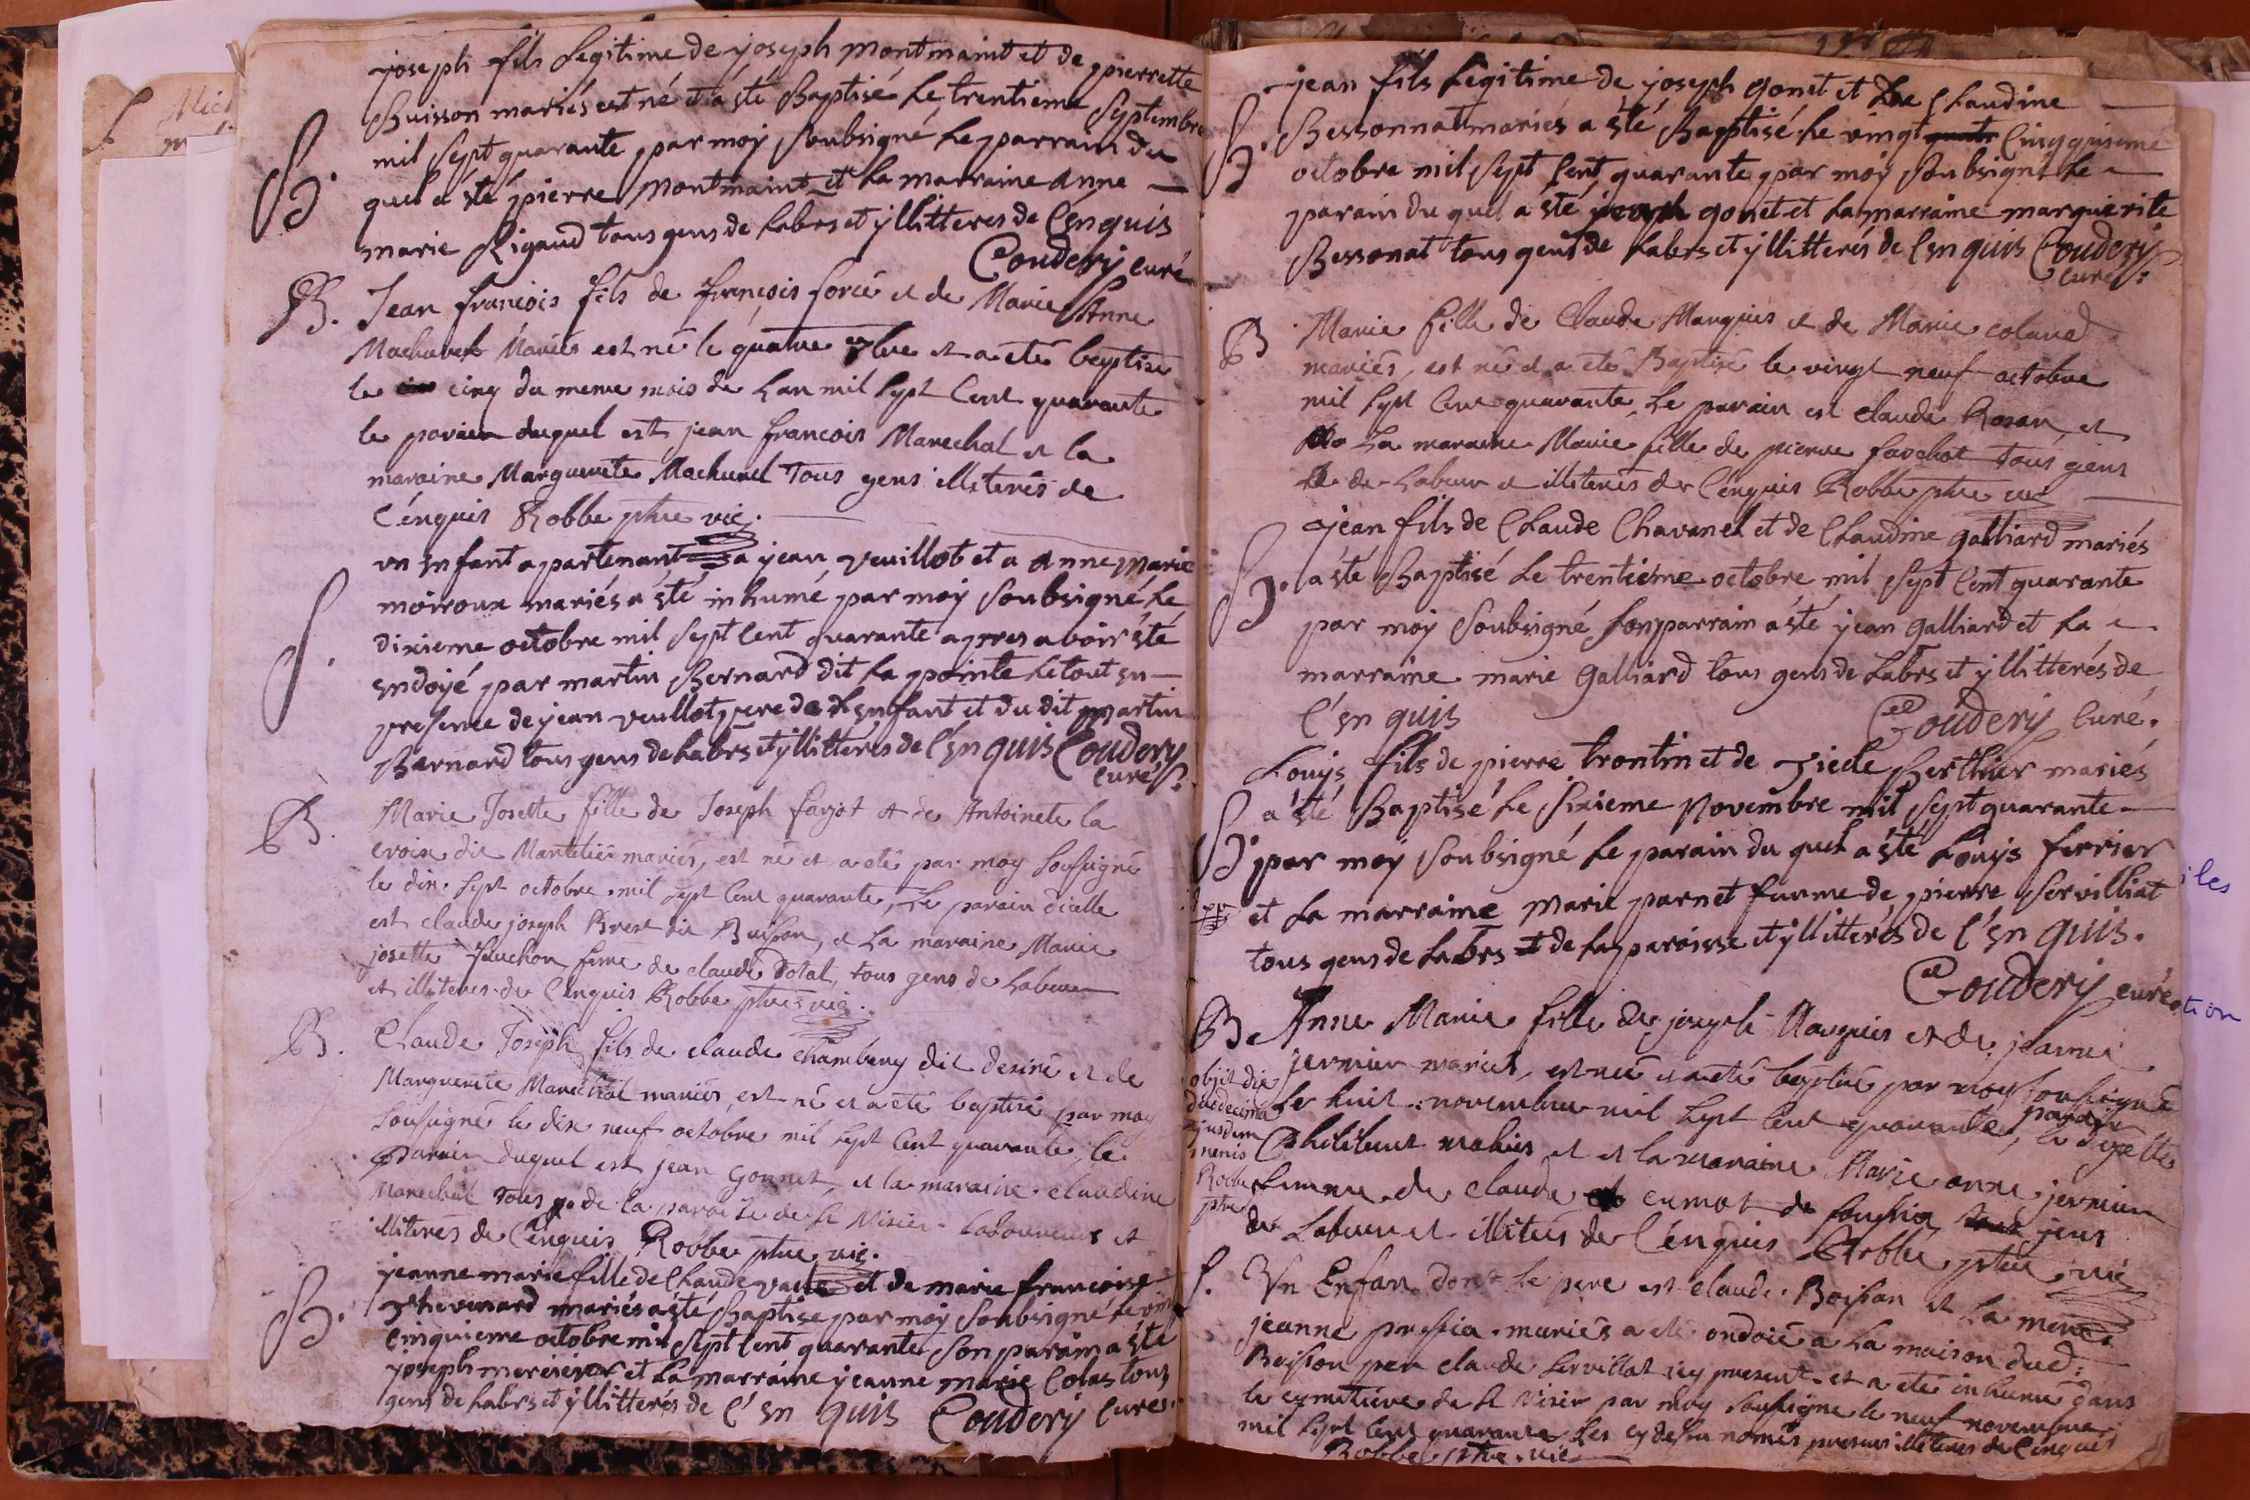 joseph fils Legitime de joseph montmaint et de pierrette
Buisson mariés est né et a esté Baptisé Le trentieme Septembre
mil Sept quarante par moy Soubsigné Le parrain du
B. quel a esté pierre montmaint et La marraine Anne
marie Rigaud tous gens de Labrs et yllitteres de C'enquis
Coudery curé
B. Jean françois fils de françois forié et de Marie Anne
Machurel Mariés est né le quatre 8bre et a eté baptisé
le cinq du meme mois de Lan mil Sept Cent quarante
le parain duquel est jean francois Marechal et la
maraine Marguerite Machurel Tous gens illiterés de
C'enquis Robbe ptre vic.
un enfant apartenant a jean veuillot et a Anne marie
moiroux mariés a esté inhumé par moy Soubsigné Le
S. dixieme octobre mil Sept Cent quarante apres avoir esté
endoyé par martin Bernard dit La pointe Le tout en
presence de jean veullot pere de Lenfant et du dit martin
Bernard tous gens de Labrs et yllitterés de C'enquis Coudery
curé
B. Marie Josette fille de Joseph farjot et de Antoinete la
croix dit Mantelier mariés, est né et a eté par moy Soussigné
le dix. Sept octobre mil Sept Cent quarante, Le parain d'icelle
est claude joseph Brest dit Buisson, et La maraine Marie
josette fauchon fme de claude Dotal, tous gens de Labeur
et illiteres de C'enquis Robbe ptre vic.
B. Claude Joseph fils de claude Chambery dit desiré et de
Marguerite Marechal mariés, est né et a eté baptisé par moy
Soussigné le dix neuf octobre mil Sept Cent quarante, le
parain duquel est jean Gonnet, et la maraine claudine
Marechal tous de la paroisse de St Nisier Laboureurs et
illiterés de C'enquis Robbe ptre vic.
jeanne marie fille de Claude et de marie françoise
B. Thevenard mariés a esté Baptise par moy Soubsigné Le vint
Cinquieme octobre mil Sept Cent quarante Son parain a esté
joseph mercier et La marraine jeanne marie Colas tous
gens de Labrs et yllitterés de C'enquis Coudery Curé.
jean fils Legitime de joseph gonet et de Claudine
B. Bessonnat mariés a esté Baptisé Le vingt Cinqquieme
octobre mil Sept Cent quarante par moy Soubsigné Le
parain du quel a esté joseph gonet et La marraine marguerite
Bessonat tous gens de Labrs et yllitterés de C'enquis Coudery
curé
B Marie fille de Claude Marquis et de Marie coland
mariés, est né et a eté Baptisé le vingt neuf octobre
mil Sept Cent quarante, Le parain est claude Rozan et
La maraine Marie fille de pierre favchot tous gens
de Labeur et illiterés de C'enquis Robbe ptre vic
jean fils de Claude Chavanel et de Claudine galliard mariés
B. a esté Baptisé Le trentieme octobre mil Sept Cent quarante
par moy Soubsigné Son parrain a esté jean galliard et La
marraine marie galliard tous gens de Labrs et yllitterés de
C'enquis Coudery Curé.
Louÿs fils de pierre trontin et de Berthier mariés
a esté Baptisé Le Sixieme Novembre mil Sept quarante
B. par moy Soubsigné Le parain du quel a esté Louÿs ferrier
et La marraine marie parnet femme de pierre Servilliat
tous gens de Labrs de La paroisse et yllitterés de C'enquis.
Coudery curé
B Anne Marie fille de joseph Marquis et de jeanne
jermier mariés, est née et a eté baptisé par moy Soussigné
Le huit novembre mil Sept Cent quarante, le parain d'icelle
objit die
duodecima
ejusdem
mensis
Robbe
ptre
Philibert et la maraine Marie anne jermier
femme de claude cumot de gens
de Labeur et illiterés de C'enquis Robbe ptre vic
S. Un Enfan dont Le pere est claude Boisson et La mere
jeanne mariés a eté ondoié a La maison dud:
Boisson par claude Servillat icy present et a eté inhumé dans
le cymetiere de St Nisier par moy Soussigné le neuf novembre
mil Sept Cent quarante Les cy dessu només presens illiteres de C'enquis
Robbe ptre vic
iles
tion